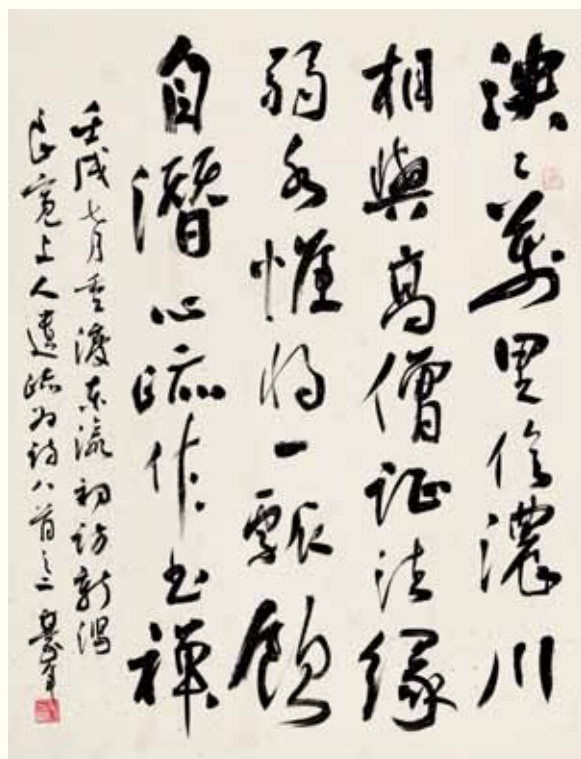 渙々萬里信濃川
相與高僧証法緣
弱水惟將一瓢飲
自潛心跡作書禪
壬戌七月重渡東瀛初訪新潟
良寬上人遺跡為詩八首之二